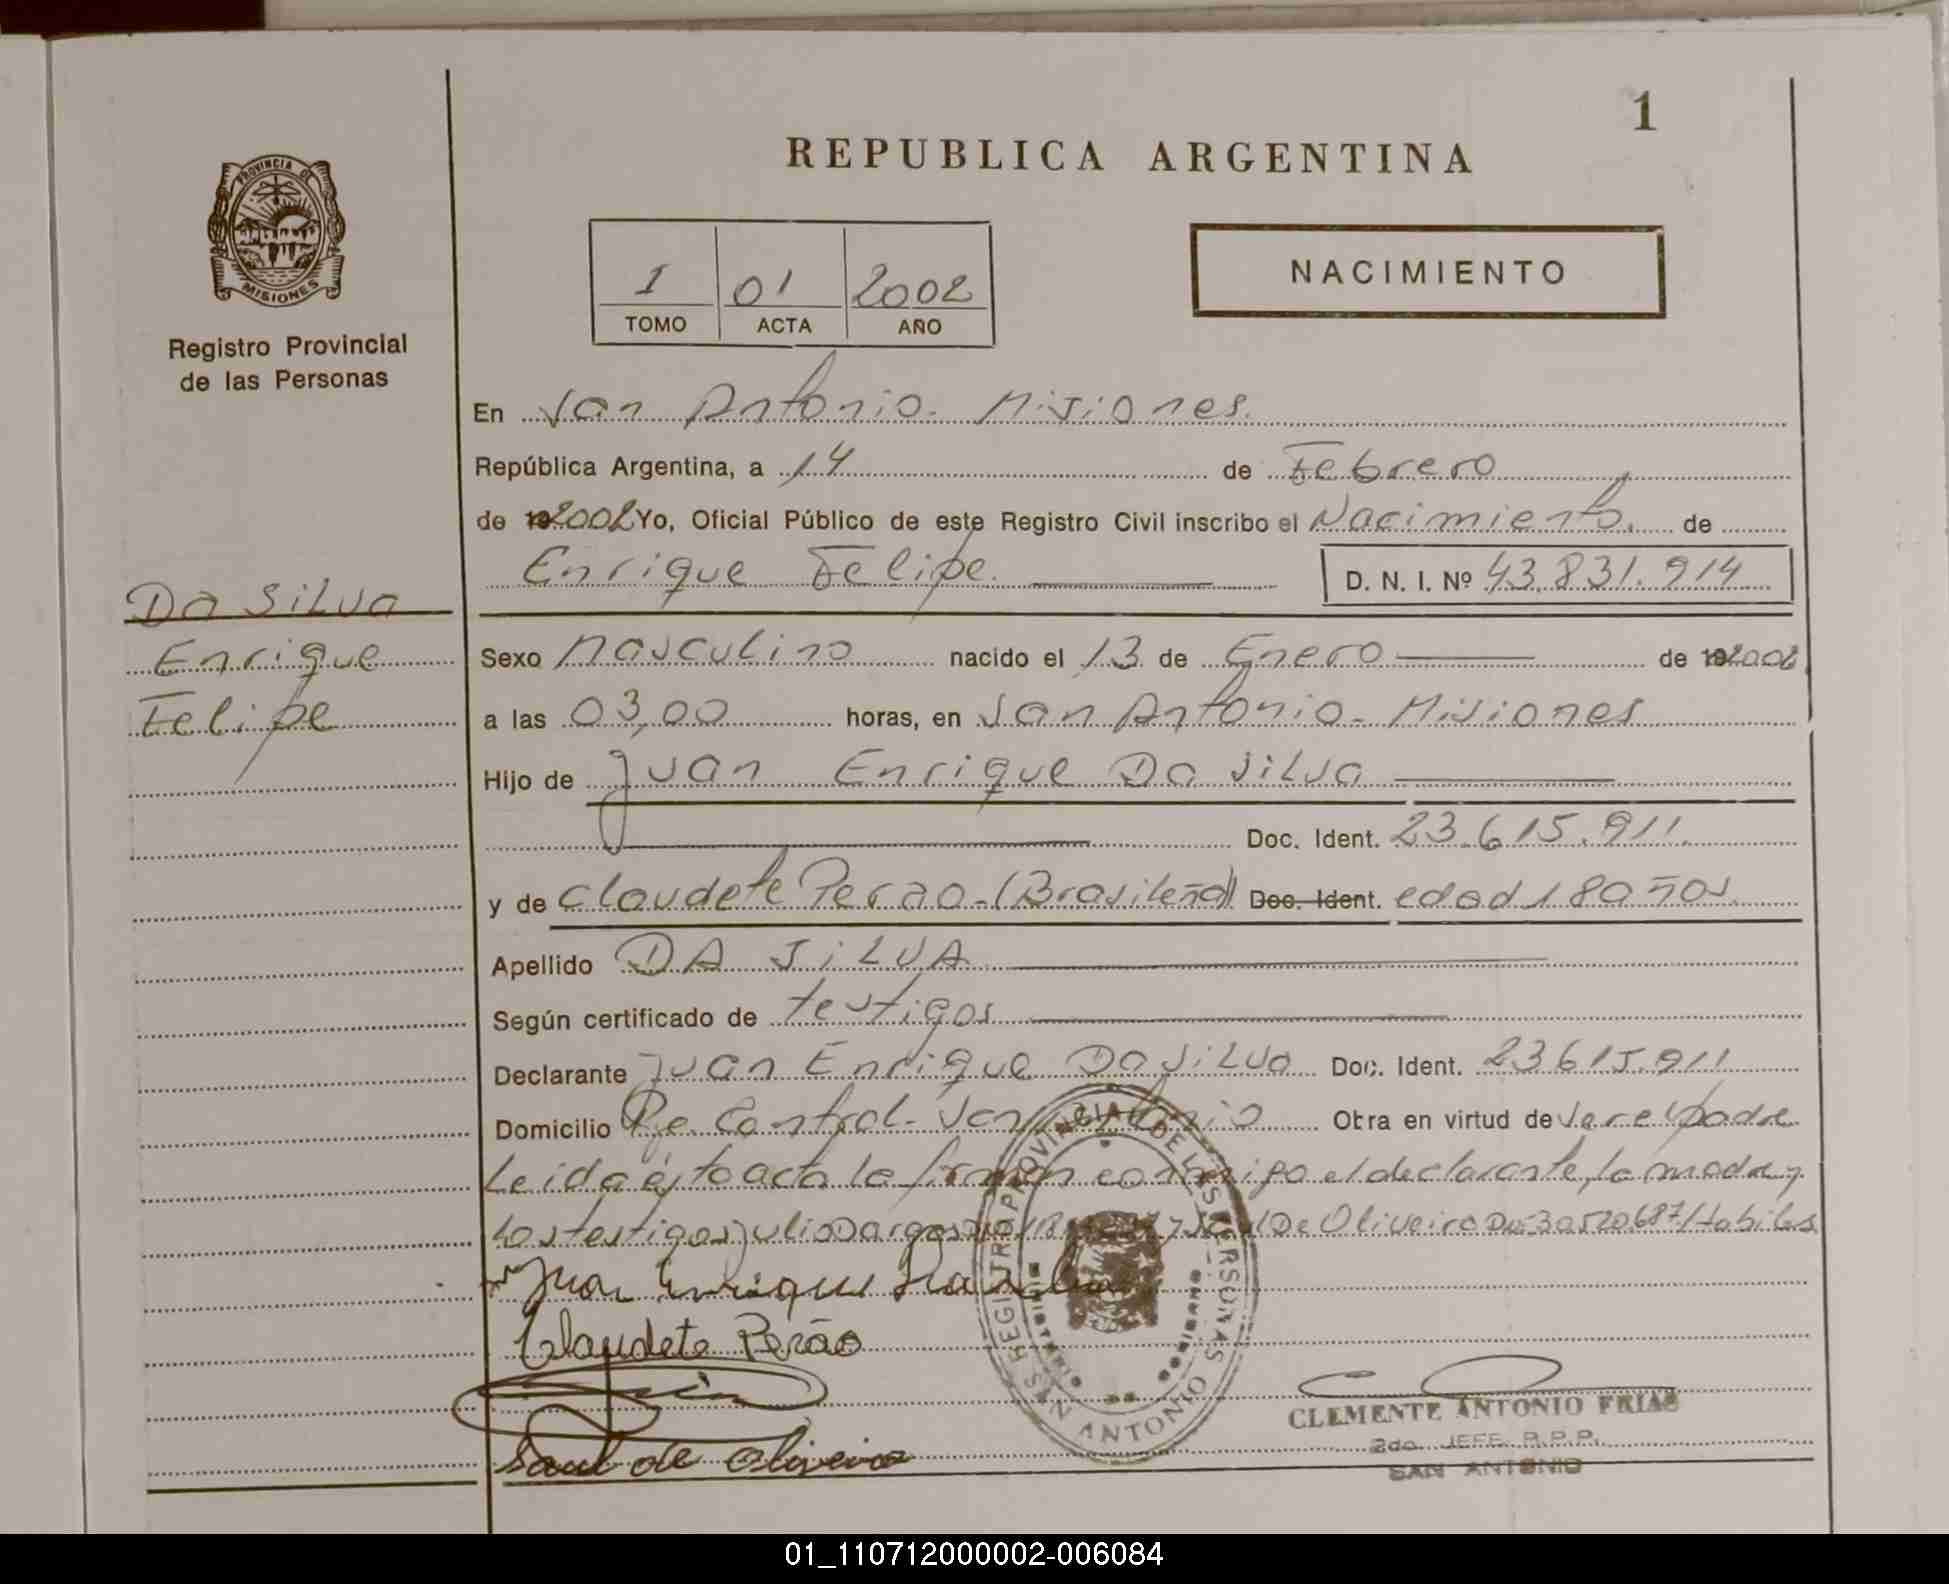 1
REPUBLICA ARGENTINA
PROVINCIA DE
MISIONES
Registro Provincial
de las Personas
I 01 2002
TOMO ACTA AÑO
NACIMIENTO
En San Antonio - Misiones
República Argentina, a 14 de Febrero
de 2002 Yo, Oficial Público de este Registro Civil inscribo el Nacimiento de
Enrique Felipe D. N. I. Nº 43.831.914
Da Silva
Enrique
Felipe
Sexo Masculino nacido el 13 de Enero de 2002
a las 03,00 horas, en San Antonio - Misiones
Hijo de Juan Enrique Da Silva
Doc. Ident. 23.615.911
y de Claudete Perao - (Brasileña) Doc. Ident. edad 18 años
Apellido DA SILVA
Según certificado de testigos
Declarante Juan Enrique Da Silva Doc. Ident. 23615.911
Domicilio Pje. Central - San Antonio Otra en virtud de ser el padre
Leída ésta acta la firman conmigo el declarante, la madre y
los testigos Julio Dargas y Saul De Oliveira DNI 30520687 Habiles
Juan Enrique Da Silva
Claudete Perão
Saul de Oliveira
REGISTRO PROVINCIAL DE LAS PERSONAS
SAN ANTONIO
CLEMENTE ANTONIO FRIAS
2do. JEFE R.P.P.
SAN ANTONIO
01_110712000002-006084